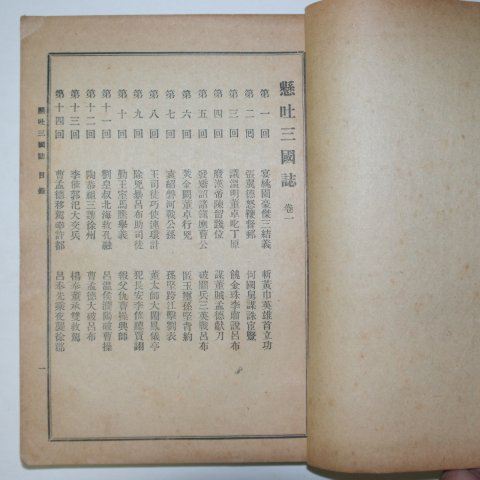 懸吐三國誌 卷一
第一回 宴桃園豪傑三結義 斬黃巾英雄首立功
第二回 張翼德怒鞭督郵 何國舅謀誅宦豎
第三回 議溫明董卓叱丁原 餽金珠李肅說呂布
第四回 廢漢帝陳留踐位 謀董賊孟德獻刀
第五回 發矯詔諸鎭應曹公 破關兵三英戰呂布
第六回 焚金闕董卓行兇 匿玉璽孫堅背約
第七回 袁紹磐河戰公孫 孫堅跨江擊劉表
第八回 王司徒巧使連環計 董太師大鬧鳳儀亭
第九回 除兇暴呂布助司徒 犯長安李傕聽賈詡
第十回 勤王室馬騰擧義 報父仇曹操興師
第十一回 劉皇叔北海救孔融 呂溫侯濮陽破曹操
第十二回 陶恭祖三讓徐州 曹孟德大破呂布
第十三回 李傕郭汜大交兵 楊奉董承雙救駕
第十四回 曹孟德移駕幸許都 呂奉先乘夜襲徐郡
懸吐三國誌 目錄 一